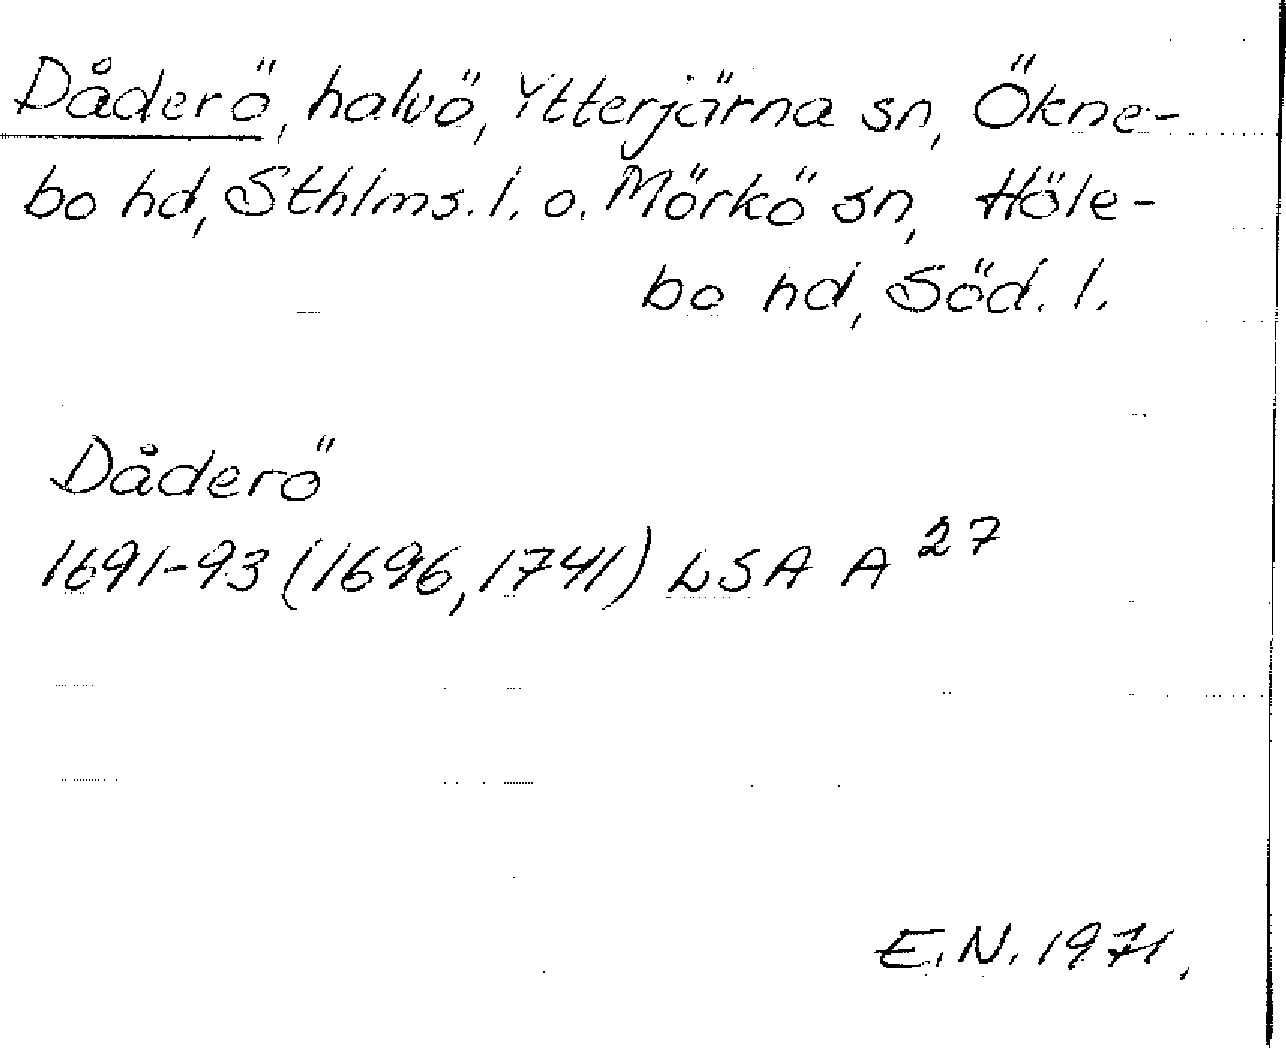 Dåderö, halvö, Ytterjärna sn, Ökne-
bo hd, Sthlms. l. o. Mörkö sn, Höle-
bo hd, Söd. l.
Dåderö
1691-93 (1696, 1741) LSA A 27
E.N. 1971.